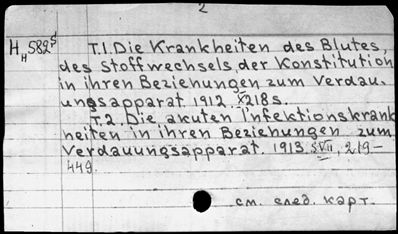 2
H н 582⁵ T.1. Die Krankheiten des Blutes,
des Stoffwechsels, der Konstitution
in ihren Beziehungen zum Verdau-
ungsapparat. 1912. X 218 s.
T.2. Die akuten Infektionskrank
heiten in ihren Beziehungen zum
Verdauungsapparat. 1913. S.VII, 219-
449.
см. след. карт.